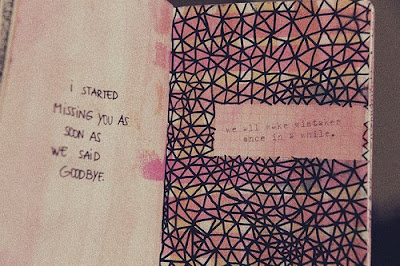 i STARTED
MISSING YOU AS
SOON AS
WE SAiD
GOODBYE.
we all make mistakes
once in a while.